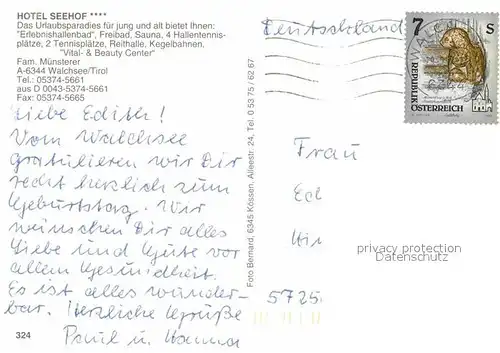 HOTEL SEEHOF ****
Das Urlaubsparadies für jung und alt bietet Ihnen:
"Erlebnishallenbad", Freibad, Sauna, 4 Hallentennis-
plätze, 2 Tennisplätze, Reithalle, Kegelbahnen,
"Vital- & Beauty Center"
Fam. Münsterer
A-6344 Walchsee/Tirol
Tel.: 05374-5661
aus D 0043-5374-5661
Fax: 05374-5665
Liebe Edith!
Vom Walchsee
gratulieren wir Dir
recht herzlich zum
Geburtstag. Wir
wünschen Dir alles
Liebe und Gute vor
allem Gesundheit.
Es ist alles wunder-
bar. Herzliche Grüße
Paul u. Hanna
324
Foto Bernard, 6345 Kössen, Alleestr. 24, Tel. 0 53 75 / 62 67
Deutschland
7 S
REPUBLIK
ÖSTERREICH
6344
Frau
Ed
5725
privacy protection
Datenschutz